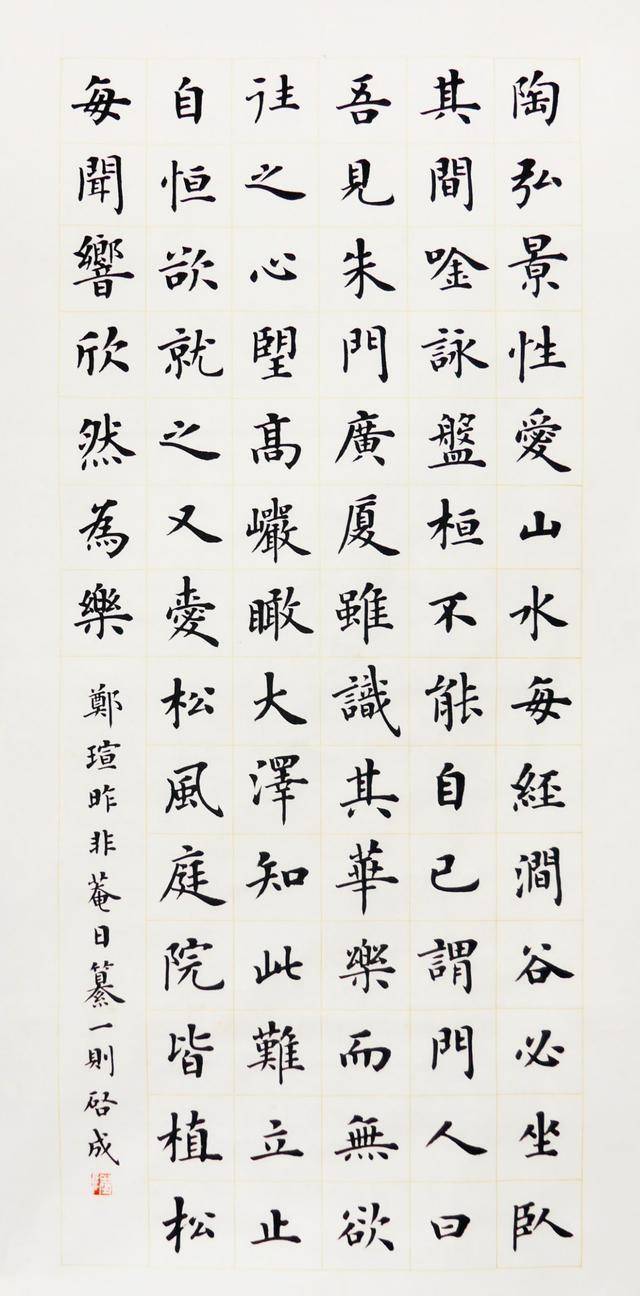 陶弘景性愛山水每經澗谷必坐臥
其間唫詠盤桓不能自已謂門人曰
吾見朱門廣厦雖識其華樂而無欲
往之心朢高巗瞰大澤知此難立止
自恒欲就之又愛松風庭院皆植松
每聞響欣然為樂
鄭瑄昨非菴日纂一則啓成